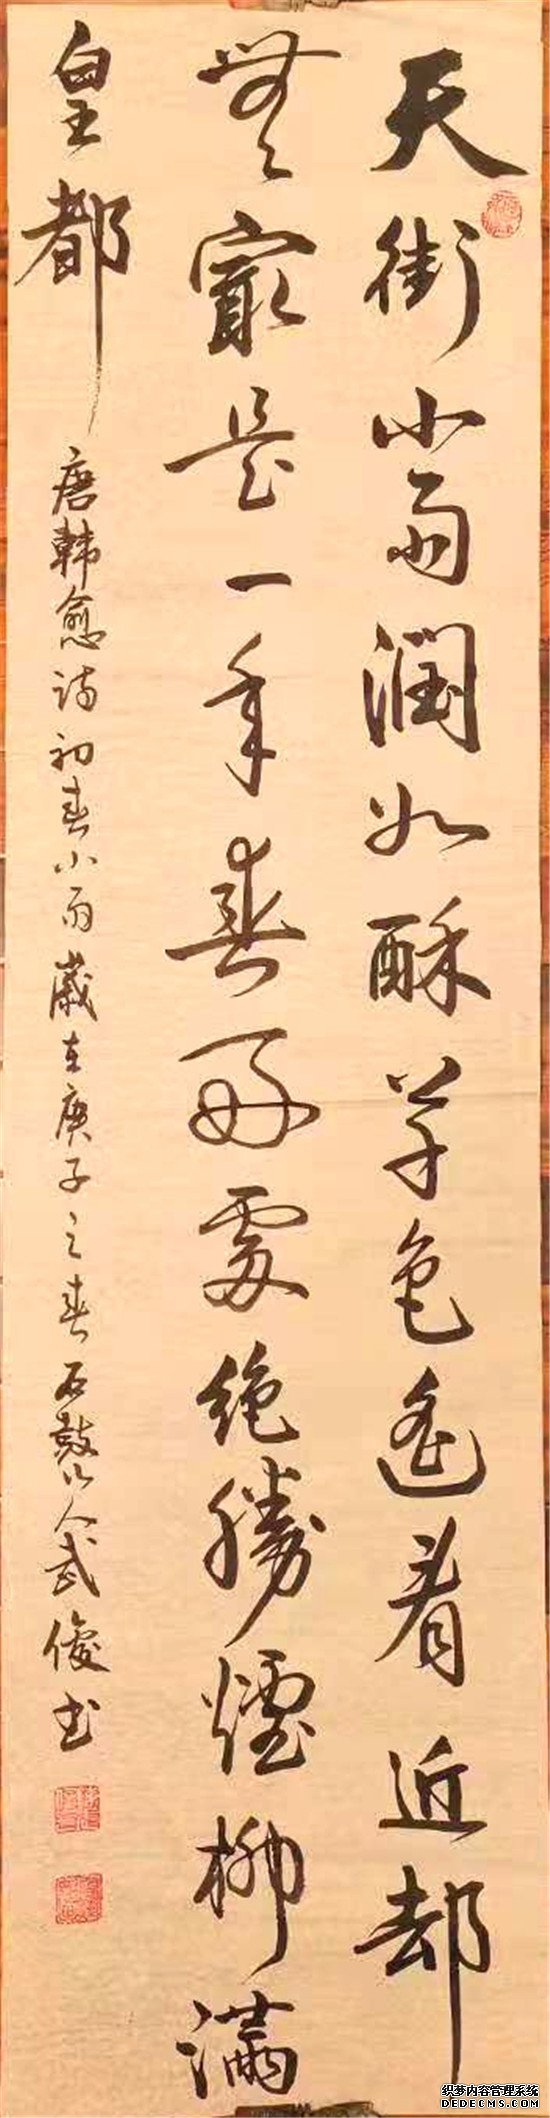 天街小雨潤如酥草色遙看近却
無冣是一年春好處絶勝煙柳滿
皇都
唐韓愈詩初春小雨歲在庚子之春石鼓山人武俊书
织梦内容管理系统
DEDECMS.COM